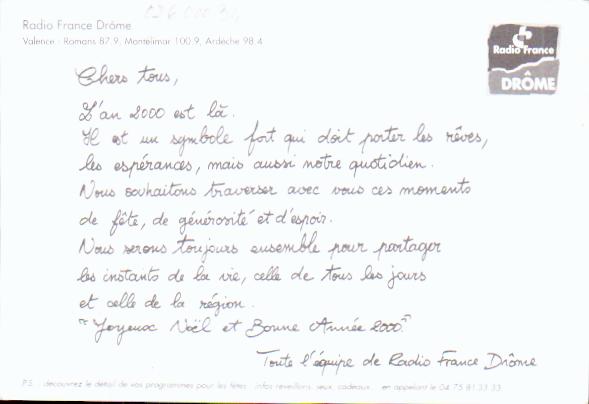 Radio France Drôme
Valence : Romans 87.9, Montélimar 100.9, Ardèche 98.4
Radio France
DRÔME
Chers tous,
L'an 2000 est là.
Il est un symbole fort qui doit porter les rêves,
les espérances, mais aussi notre quotidien.
Nous souhaitons traverser avec vous ces moments
de fête, de générosité et d'espoir.
Nous serons toujours ensemble pour partager
les instants de la vie, celle de tous les jours
et celle de la région.
"Joyeux Noël et Bonne Année 2000."
Toute l'équipe de Radio France Drôme
P.S. : découvrez le détail de vos programmes pour les fêtes : infos réveillons, jeux, cadeaux... en appelant le 04 75 81 33 33